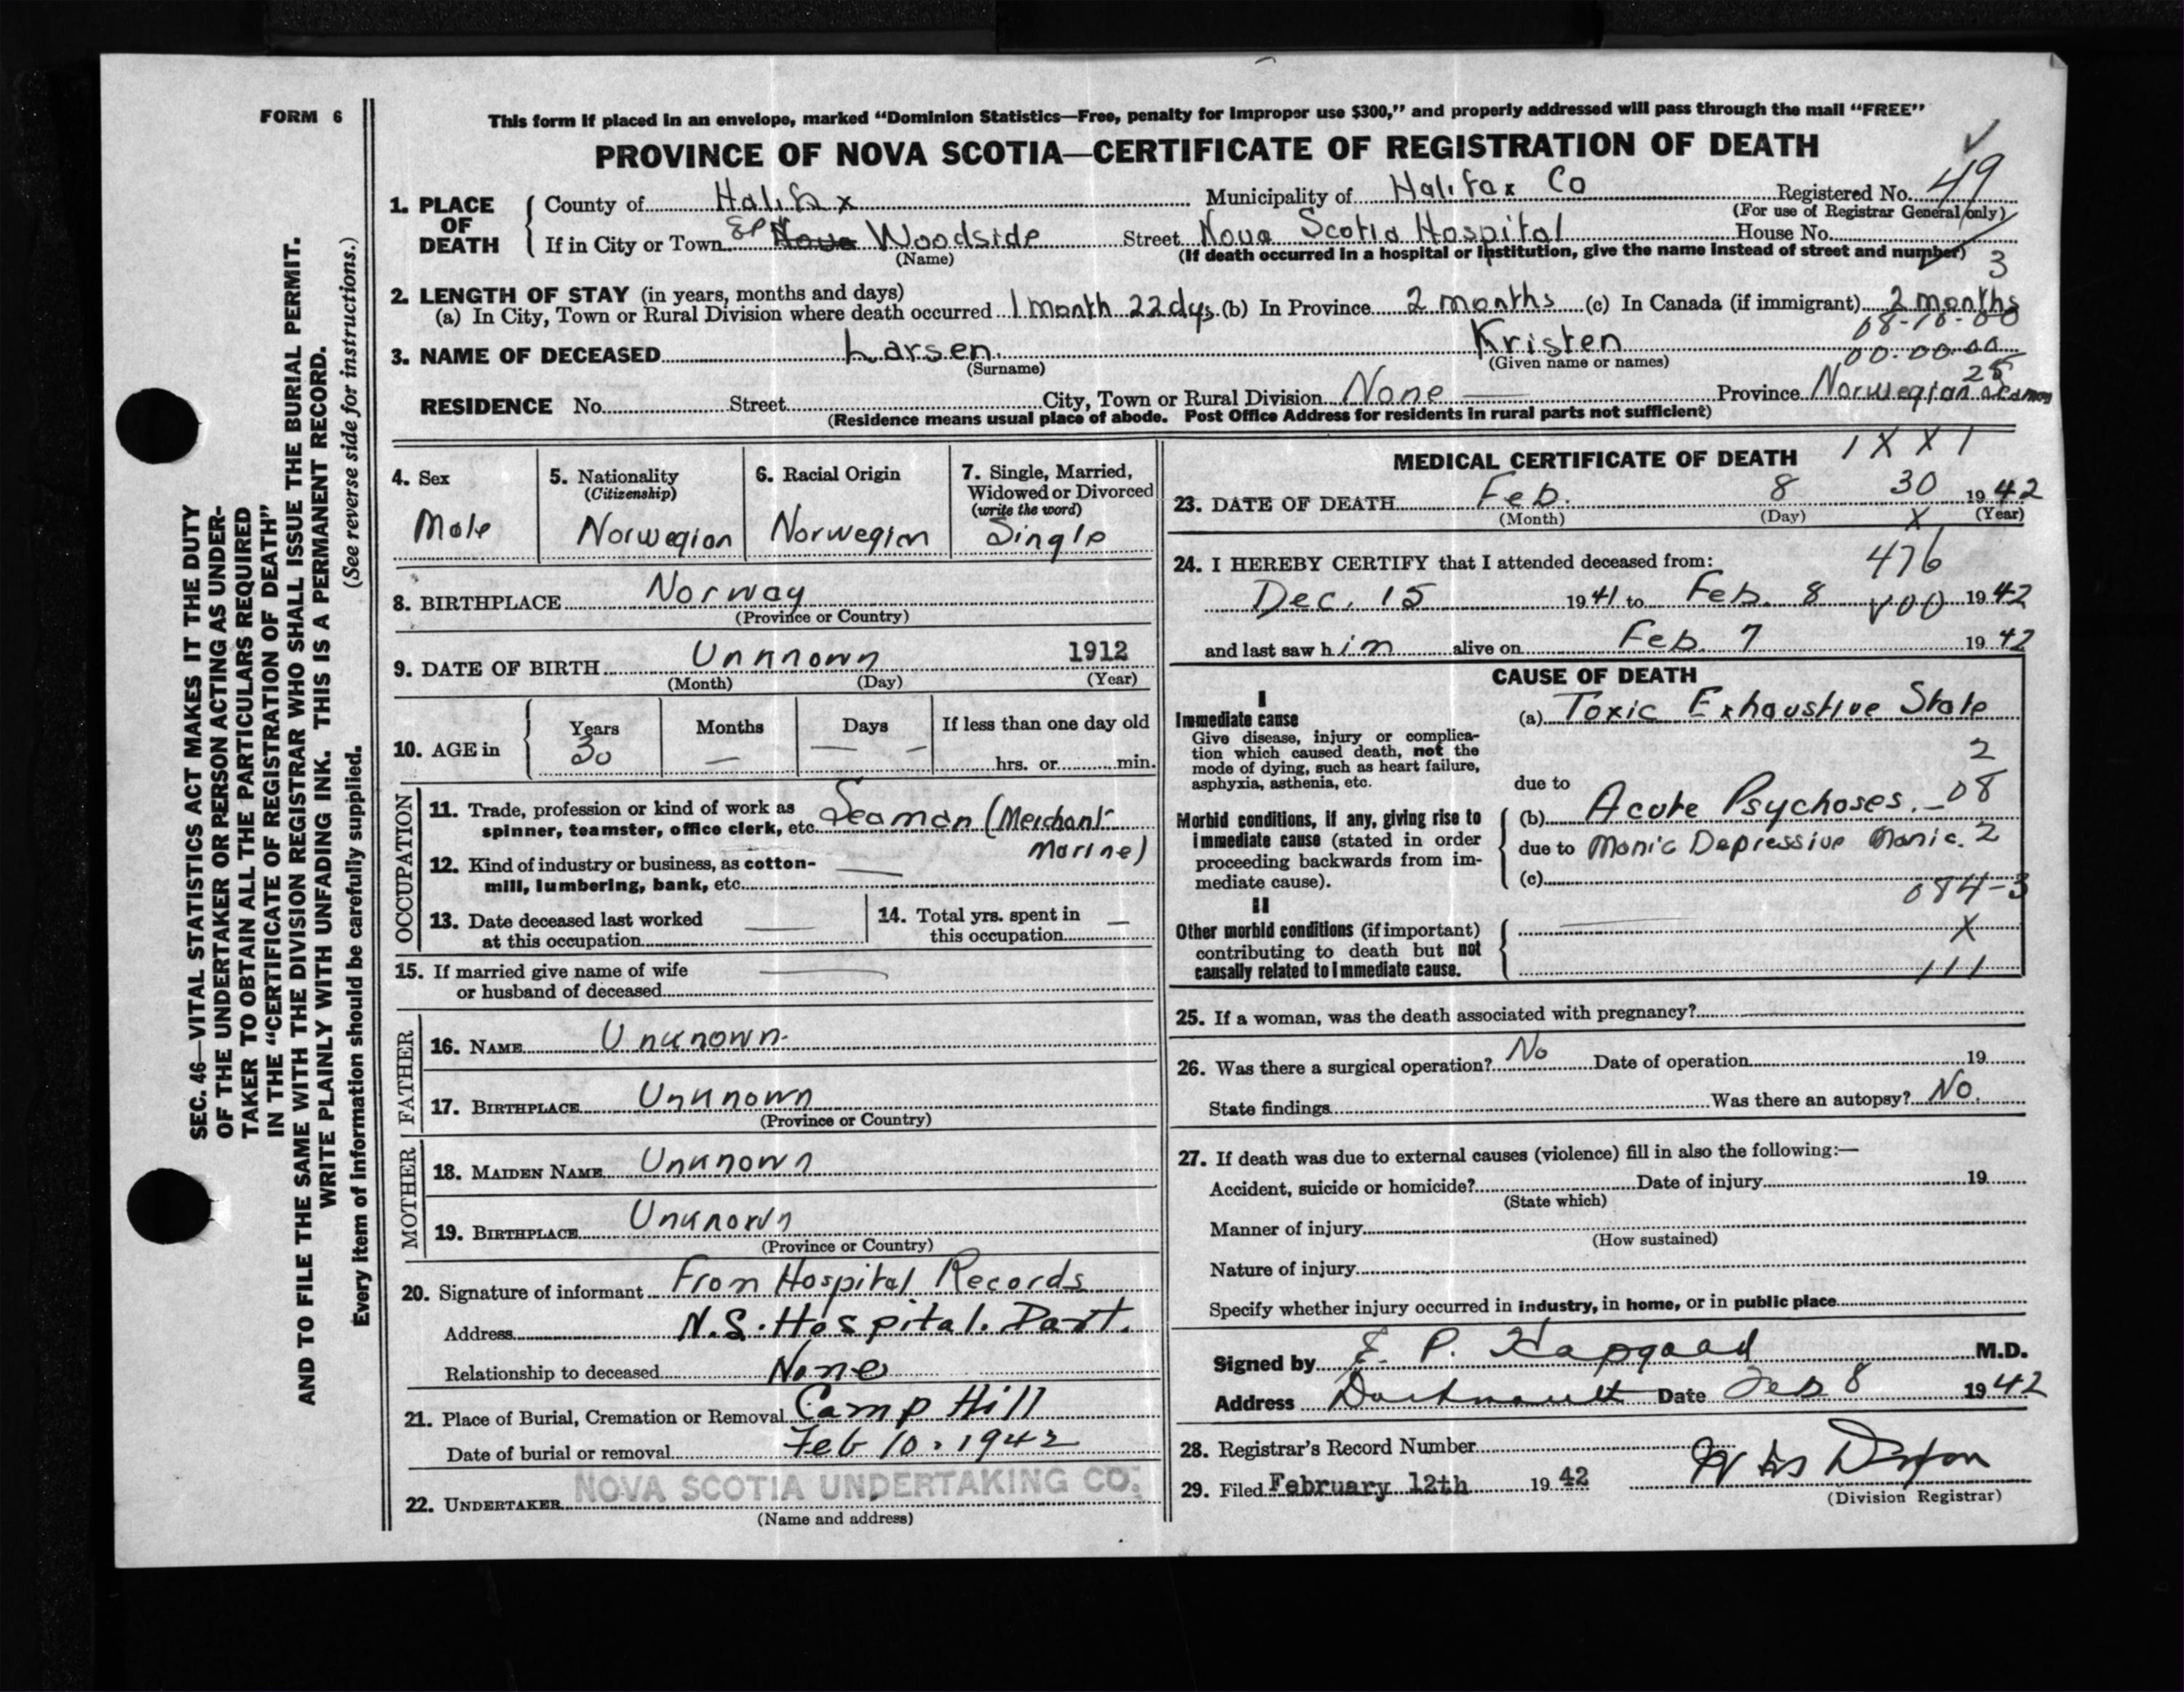 FORM 6
This form if placed in an envelope, marked "Dominion Statistics—Free, penalty for improper use $300," and properly addressed will pass through the mail "FREE"
PROVINCE OF NOVA SCOTIA—CERTIFICATE OF REGISTRATION OF DEATH
SEC. 46—VITAL STATISTICS ACT MAKES IT THE DUTY
OF THE UNDERTAKER OR PERSON ACTING AS UNDER-
TAKER TO OBTAIN ALL THE PARTICULARS REQUIRED
IN THE "CERTIFICATE OF REGISTRATION OF DEATH"
AND TO FILE THE SAME WITH THE DIVISION REGISTRAR WHO SHALL ISSUE THE BURIAL PERMIT.
WRITE PLAINLY WITH UNFADING INK. THIS IS A PERMANENT RECORD.
Every item of information should be carefully supplied. (See reverse side for instructions.)
1. PLACE OF DEATH
County of Halifax Municipality of Halifax Co Registered No. 49
(For use of Registrar General only)
If in City or Town Woodside Street Nova Scotia Hospital House No.
(Name) (If death occurred in a hospital or institution, give the name instead of street and number)
3
2. LENGTH OF STAY (in years, months and days)
(a) In City, Town or Rural Division where death occurred 1 month 22 dys. (b) In Province 2 months (c) In Canada (if immigrant) 2 months
08-10-00
3. NAME OF DECEASED Larsen. Kristen
00-00-00
(Surname) (Given name or names)
25
RESIDENCE No. Street City, Town or Rural Division None Province Norwegian Seaman
(Residence means usual place of abode. Post Office Address for residents in rural parts not sufficient)
4. Sex
Male
5. Nationality
(Citizenship)
Norwegian
6. Racial Origin
Norwegian
7. Single, Married,
Widowed or Divorced
(write the word)
Single
8. BIRTHPLACE Norway
(Province or Country)
9. DATE OF BIRTH Unknown 1912
(Month) (Day) (Year)
10. AGE in
Years Months Days If less than one day old
30 — — — hrs. or min.
OCCUPATION
11. Trade, profession or kind of work as
spinner, teamster, office clerk, etc. Seaman (Merchant
Marine)
12. Kind of industry or business, as cotton-
mill, lumbering, bank, etc. —
13. Date deceased last worked
at this occupation —
14. Total yrs. spent in
this occupation —
15. If married give name of wife
or husband of deceased —
FATHER
16. NAME Unknown.
17. BIRTHPLACE Unknown
(Province or Country)
MOTHER
18. MAIDEN NAME Unknown
19. BIRTHPLACE Unknown
(Province or Country)
20. Signature of informant From Hospital Records
Address N.S. Hospital. Dart.
Relationship to deceased None
21. Place of Burial, Cremation or Removal Camp Hill
Date of burial or removal Feb 10. 1942
22. UNDERTAKER NOVA SCOTIA UNDERTAKING CO.
(Name and address)
MEDICAL CERTIFICATE OF DEATH 1 X X 1
23. DATE OF DEATH Feb. 8 30 1942
(Month) (Day) X (Year)
24. I HEREBY CERTIFY that I attended deceased from: 476
Dec. 15 1941 to Feb. 8 1942
and last saw him alive on Feb. 7 1942
CAUSE OF DEATH
I
Immediate cause
Give disease, injury or complica-
tion which caused death, not the
mode of dying, such as heart failure,
asphyxia, asthenia, etc.
(a) Toxic Exhaustive State
2
due to
Morbid conditions, if any, giving rise to
immediate cause (stated in order
proceeding backwards from im-
mediate cause).
(b) Acute Psychoses. - 08
due to Manic Depressive Manic. 2
(c)
084-3
II
Other morbid conditions (if important)
contributing to death but not
causally related to immediate cause.
— X
111
25. If a woman, was the death associated with pregnancy?
26. Was there a surgical operation? No Date of operation 19
State findings Was there an autopsy? No.
27. If death was due to external causes (violence) fill in also the following:—
Accident, suicide or homicide? Date of injury 19
(State which)
Manner of injury
(How sustained)
Nature of injury
Specify whether injury occurred in industry, in home, or in public place
Signed by E. P. Hapgood M.D.
Address Dartmouth Date Feb 8 1942
28. Registrar's Record Number
29. Filed February 12th 1942
(Division Registrar)